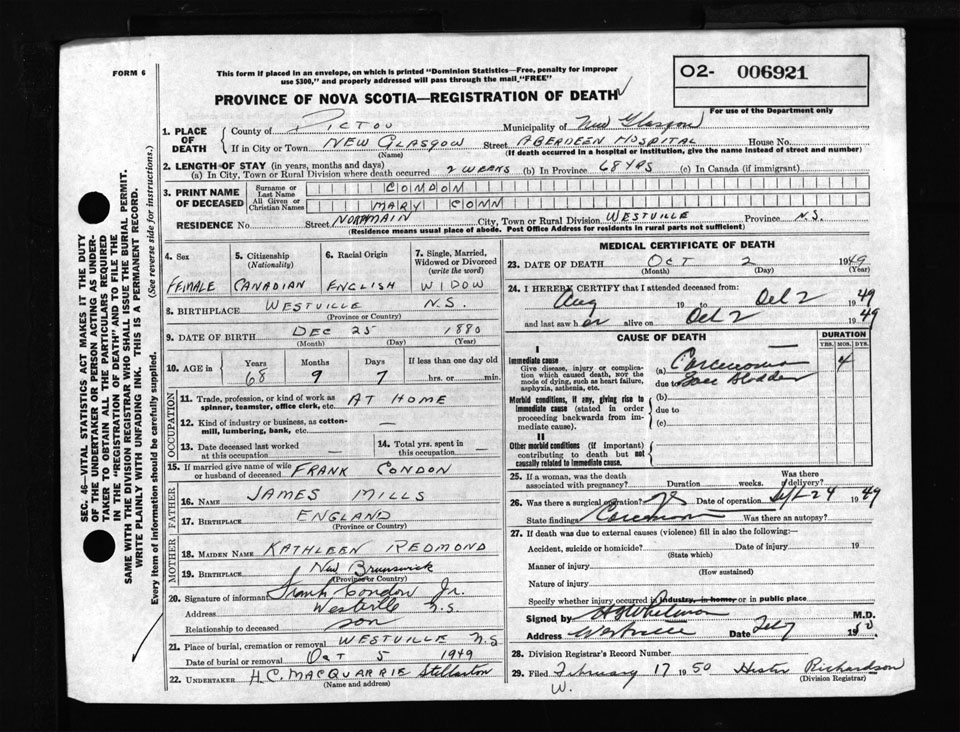 FORM 6
This form if placed in an envelope, on which is printed "Dominion Statistics—Free, penalty for improper
use $300," and properly addressed will pass through the mail, "FREE"
O2- 006921
For use of the Department only
PROVINCE OF NOVA SCOTIA—REGISTRATION OF DEATH
1. PLACE OF DEATH
County of PICTOU Municipality of New Glasgow
If in City or Town NEW GLASGOW Street ABERDEEN HOSPITAL House No.
(Name) (If death occurred in a hospital or institution, give the name instead of street and number)
2. LENGTH OF STAY (in years, months and days)
(a) In City, Town or Rural Division where death occurred 2 WEEKS (b) In Province 68 YRS (c) In Canada (if immigrant)
3. PRINT NAME OF DECEASED
Surname or Last Name CONDON
All Given or Christian Names MARY CONN
RESIDENCE No. Street NORTH MAIN City, Town or Rural Division WESTVILLE Province N.S.
(Residence means usual place of abode. Post Office Address for residents in rural parts not sufficient)
4. Sex FEMALE
5. Citizenship (Nationality) CANADIAN
6. Racial Origin ENGLISH
7. Single, Married, Widowed or Divorced (write the word) WIDOW
8. BIRTHPLACE WESTVILLE N.S.
(Province or Country)
9. DATE OF BIRTH DEC 25 1880
(Month) (Day) (Year)
10. AGE in Years 68 Months 9 Days 7 If less than one day old hrs. or min.
OCCUPATION
11. Trade, profession, or kind of work as spinner, teamster, office clerk, etc. AT HOME
12. Kind of industry or business, as cotton-mill, lumbering, bank, etc. —
13. Date deceased last worked at this occupation —
14. Total yrs. spent in this occupation —
15. If married give name of wife or husband of deceased FRANK CONDON
FATHER
16. NAME JAMES MILLS
17. BIRTHPLACE ENGLAND
(Province or Country)
MOTHER
18. MAIDEN NAME KATHLEEN REDMOND
19. BIRTHPLACE New Brunswick
(Province or Country)
20. Signature of informant Frank Condon Jr.
Address Westville N.S.
Relationship to deceased son
21. Place of burial, cremation or removal WESTVILLE N.S
Date of burial or removal Oct 5 1949
22. UNDERTAKER H.C. MACQUARRIE Stellarton
(Name and address)
MEDICAL CERTIFICATE OF DEATH
23. DATE OF DEATH OCT 2 1949
(Month) (Day) (Year)
24. I HEREBY CERTIFY that I attended deceased from:
Aug 19 to Oct 2 1949
and last saw h er alive on Oct 2 1949
CAUSE OF DEATH
DURATION
YRS. MOS. DYS.
I
Immediate cause
Give disease, injury or complication which caused death, not the mode of dying, such as heart failure, asphyxia, asthenia, etc.
(a) Carcinoma 4
due to Gall Bladder
Morbid conditions, if any, giving rise to immediate cause (stated in order proceeding backwards from immediate cause).
(b)
due to
(c)
II
Other morbid conditions (if important) contributing to death but not causally related to immediate cause.
25. If a woman, was the death associated with pregnancy? Duration weeks. Was there delivery?
26. Was there a surgical operation? yes Date of operation Sept 24 1949
State findings Carcinoma Was there an autopsy?
27. If death was due to external causes (violence) fill in also the following:—
Accident, suicide or homicide? Date of injury 19
(State which)
Manner of injury
(How sustained)
Nature of injury
Specify whether injury occurred in industry, in home, or in public place
Signed by M.D.
Address Westville Date Feby 19
28. Division Registrar's Record Number
29. Filed February 17 1950 Hester Richardson
W. (Division Registrar)
SEC. 46—VITAL STATISTICS ACT MAKES IT THE DUTY
OF THE UNDERTAKER OR PERSON ACTING AS UNDER-
TAKER TO OBTAIN ALL THE PARTICULARS REQUIRED
IN THE "REGISTRATION OF DEATH" AND TO FILE THE
SAME WITH THE DIVISION REGISTRAR WHO SHALL ISSUE THE BURIAL PERMIT.
WRITE PLAINLY WITH UNFADING INK. THIS IS A PERMANENT RECORD.
Every item of information should be carefully supplied. (See reverse side for instructions.)